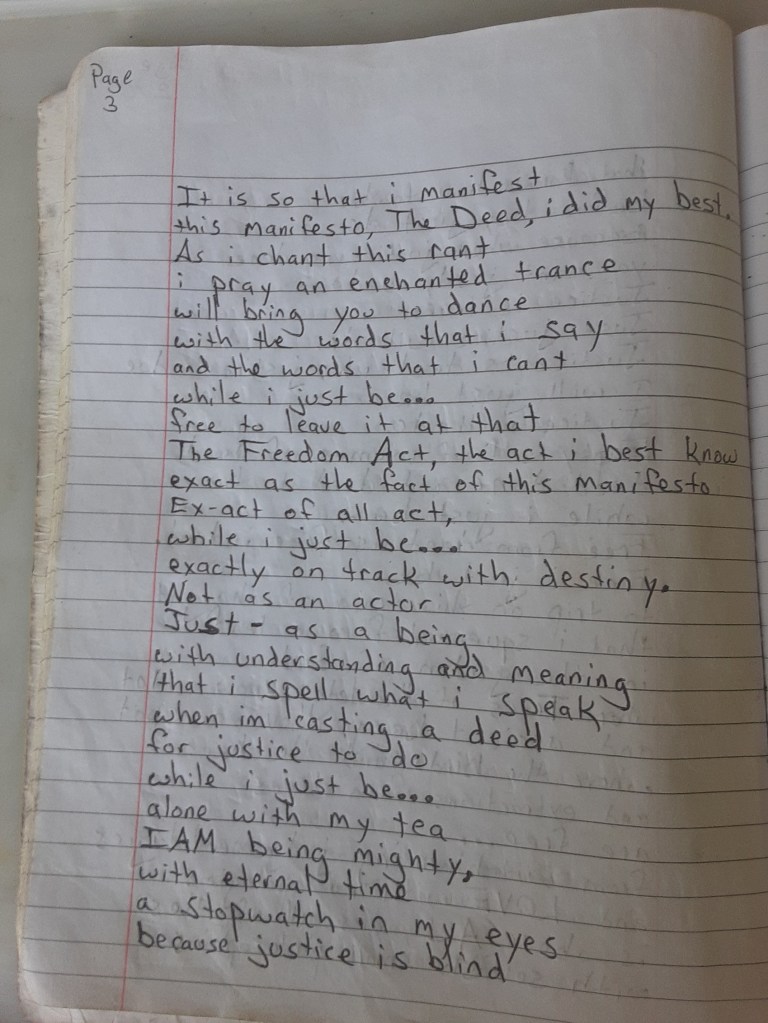 Page
3
It is so that i manifest
this manifesto, The Deed, i did my best.
As i chant this rant
i pray an enchanted trance
will bring you to dance
with the words that i say
and the words that i cant
while i just be...
free to leave it at that
The Freedom Act, the act i best know
exact as the fact of this manifesto
Ex-act of all act,
while i just be...
exactly on track with destiny.
Not as an actor
Just - as a being
with understanding and meaning
that i spell what i speak
when im casting a deed
for justice to do
while i just be...
alone with my tea
I AM being mighty,
with eternal time
a stopwatch in my eyes
because justice is blind